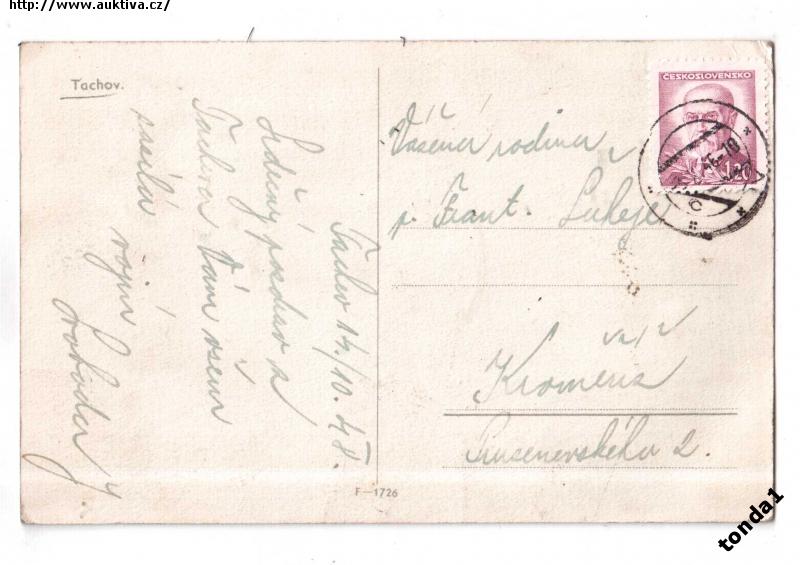 http://www.auktiva.cz/
Tachov.
ČESKOSLOVENSKO
1.20
Tachov 14/10. 48.
Srdečný pozdrav z
Tachova Vám všem
zasílá vojín
Vážená rodina
p. Frant.
Kroměříž
2.
F—1726
tonda1